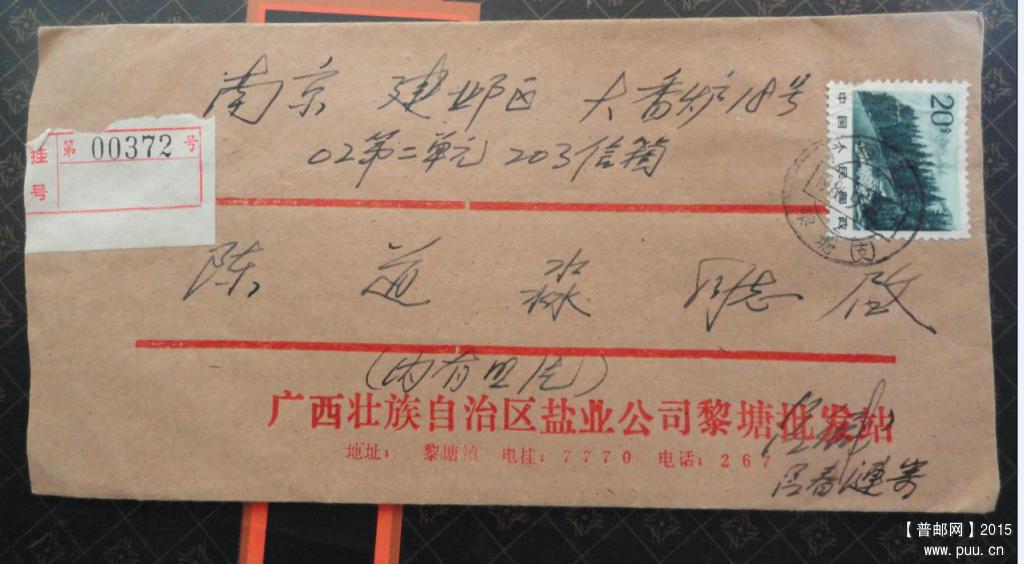 南京 建邺区 大香炉18号
02第二单元 203信箱
挂号
第 00372 号
20分
中国人民邮政
陈道淼 同志 启
广西壮族自治区盐业公司黎塘批发站
地址: 黎塘镇 电挂: 7770 电话: 267
【普邮网】2015
www.puu.cn